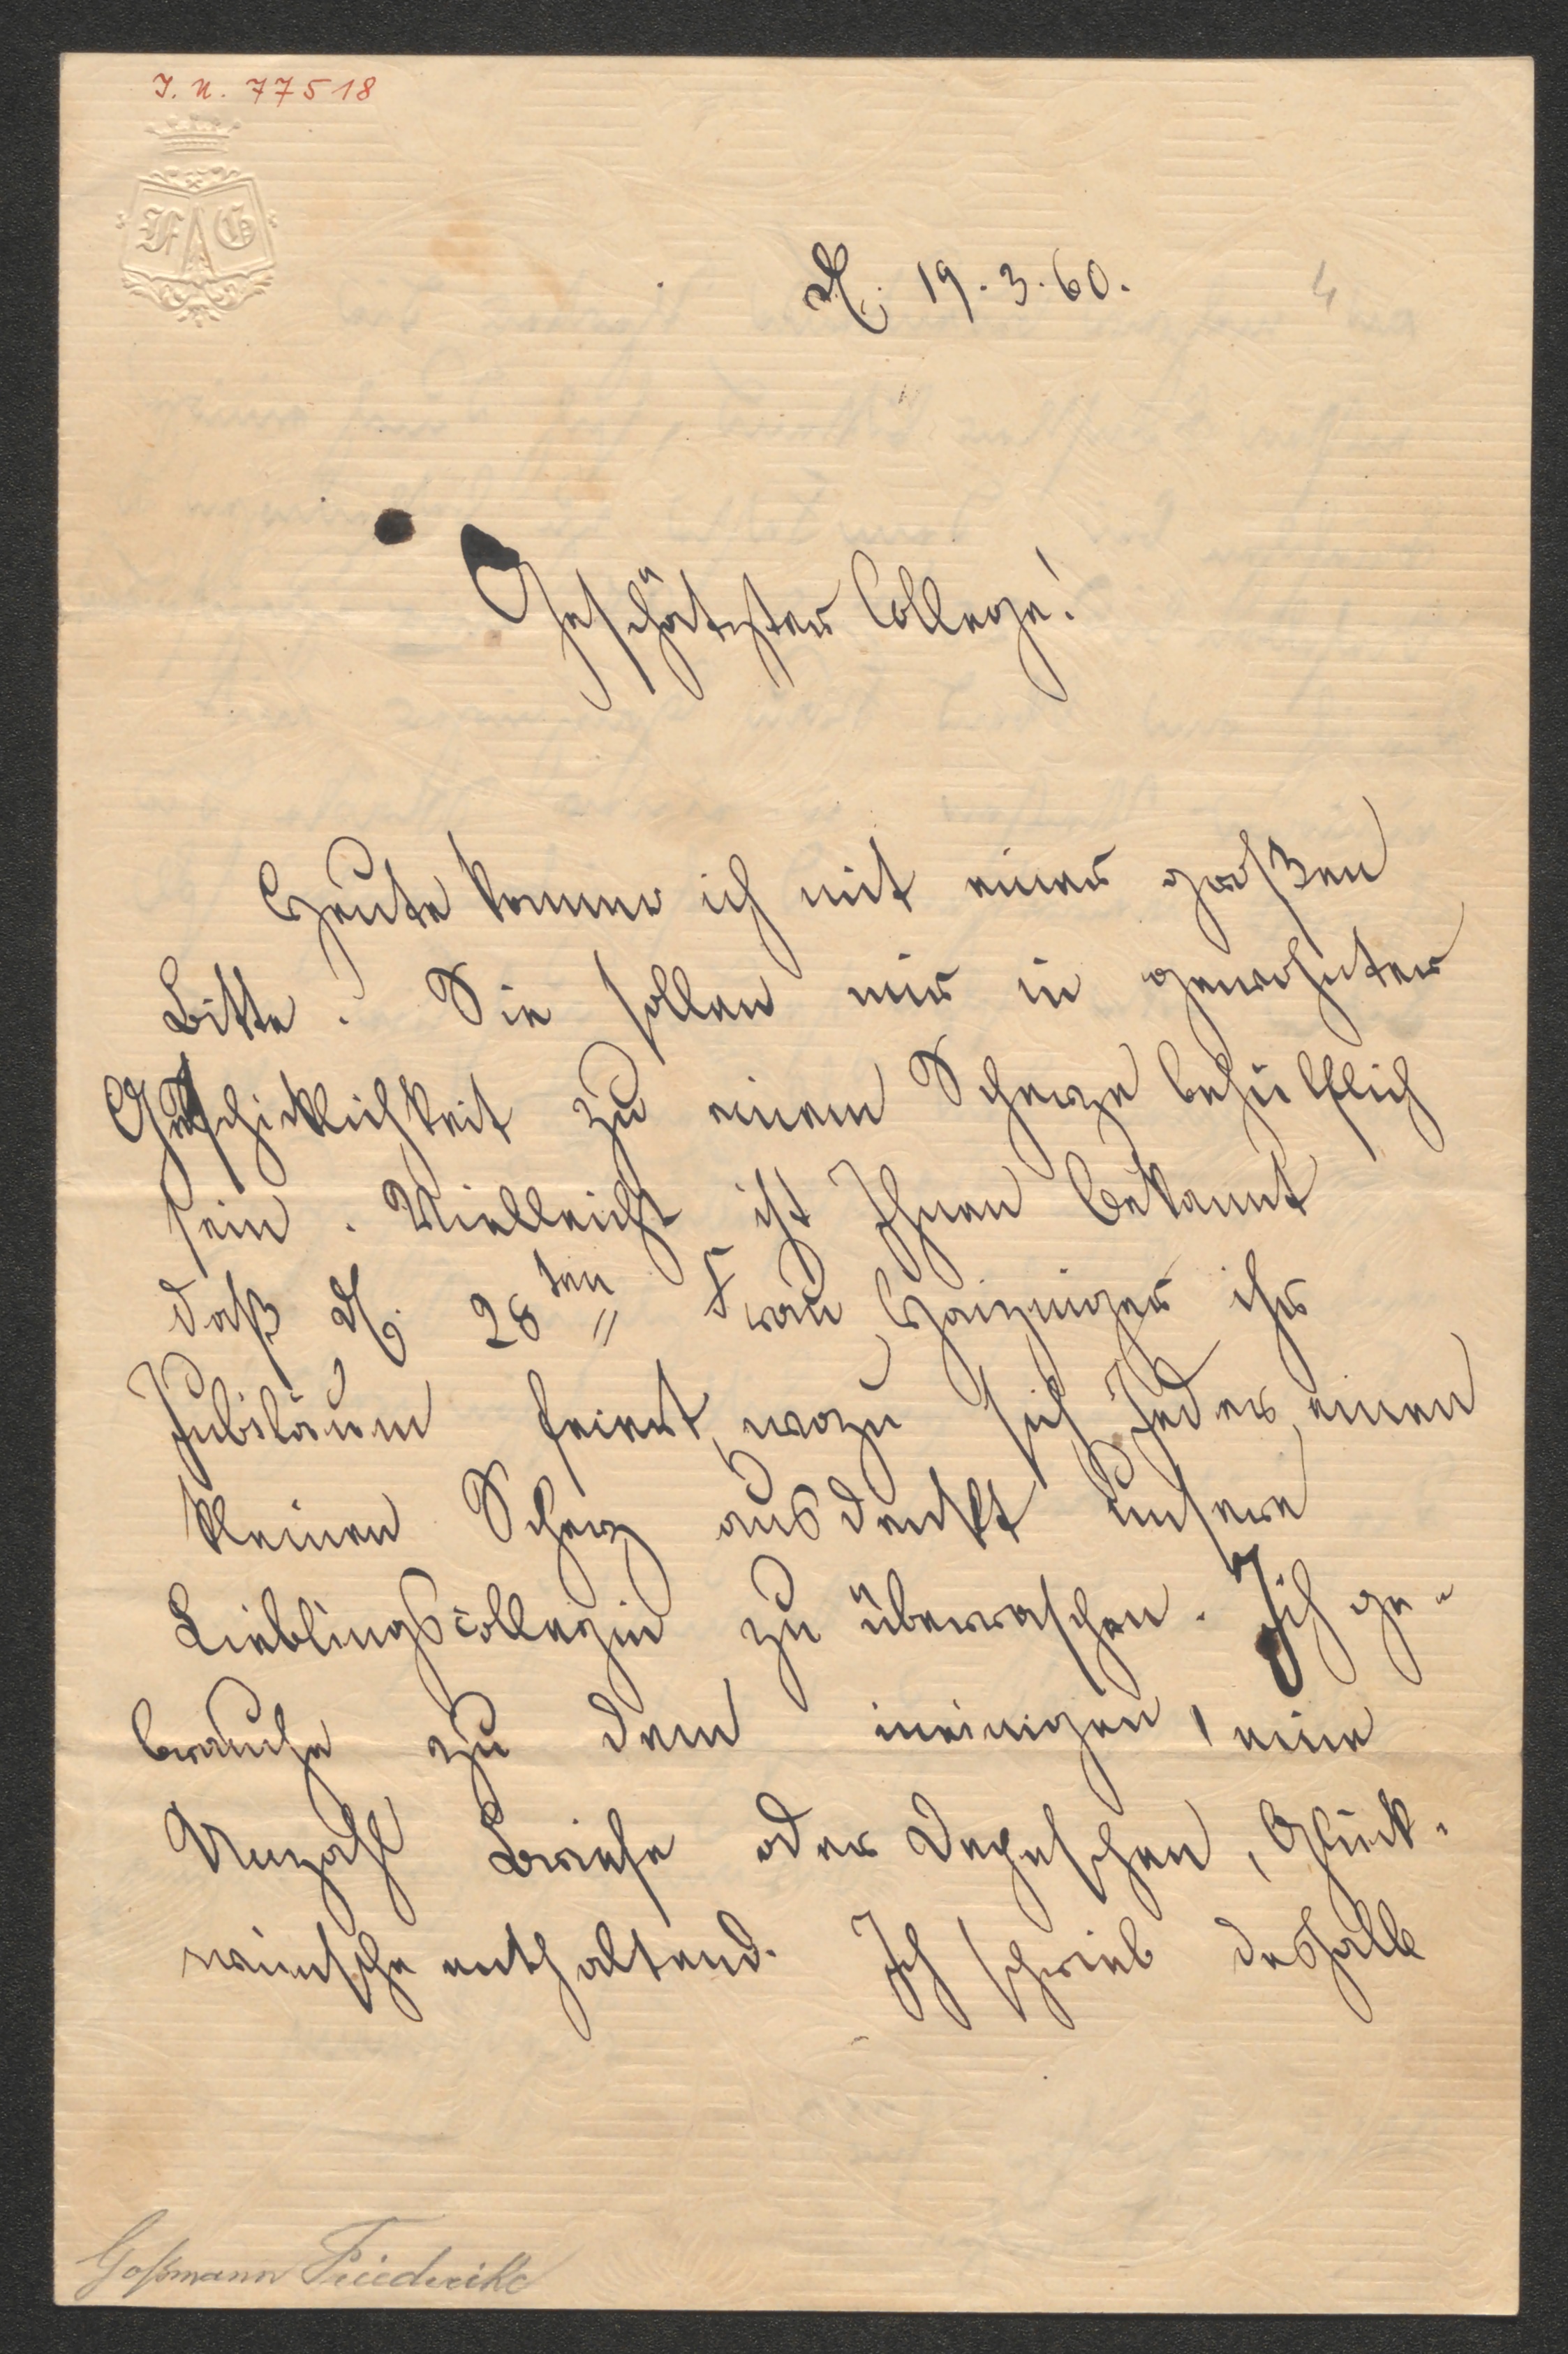 I. N. 77518
F G
D. 19.3.60.
4
Geschätzter College!
Heute komme ich mit einer großen
Bitte. Sie sollen mir in gewohnter
Geschicklichkeit zu einem Scherze behülflich
sein. Vielleicht ist Ihnen bekannt
daß d. 28ten Frau Haizinger ihr
Jubiläum feiert, wozu sich Jeder einen
kleinen Scherz ausdenkt unsere
Lieblingscollegin zu überraschen. Ich ge-
brauche zu dem meinigen, eine
Anzahl Briefe oder Depeschen, Glück-
wünsche enthaltend. Ich schrieb deshalb
Goßmann Friederike